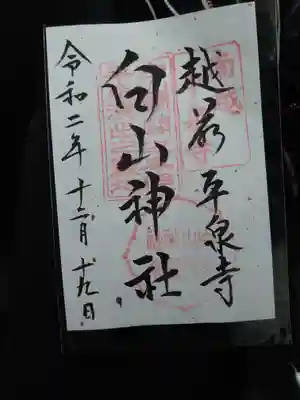 越前平泉寺
白山神社
令和二年十二月十九日